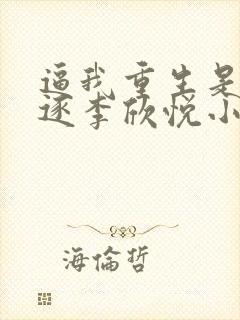 逼我重生是
逐李欣悦小
海倫哲